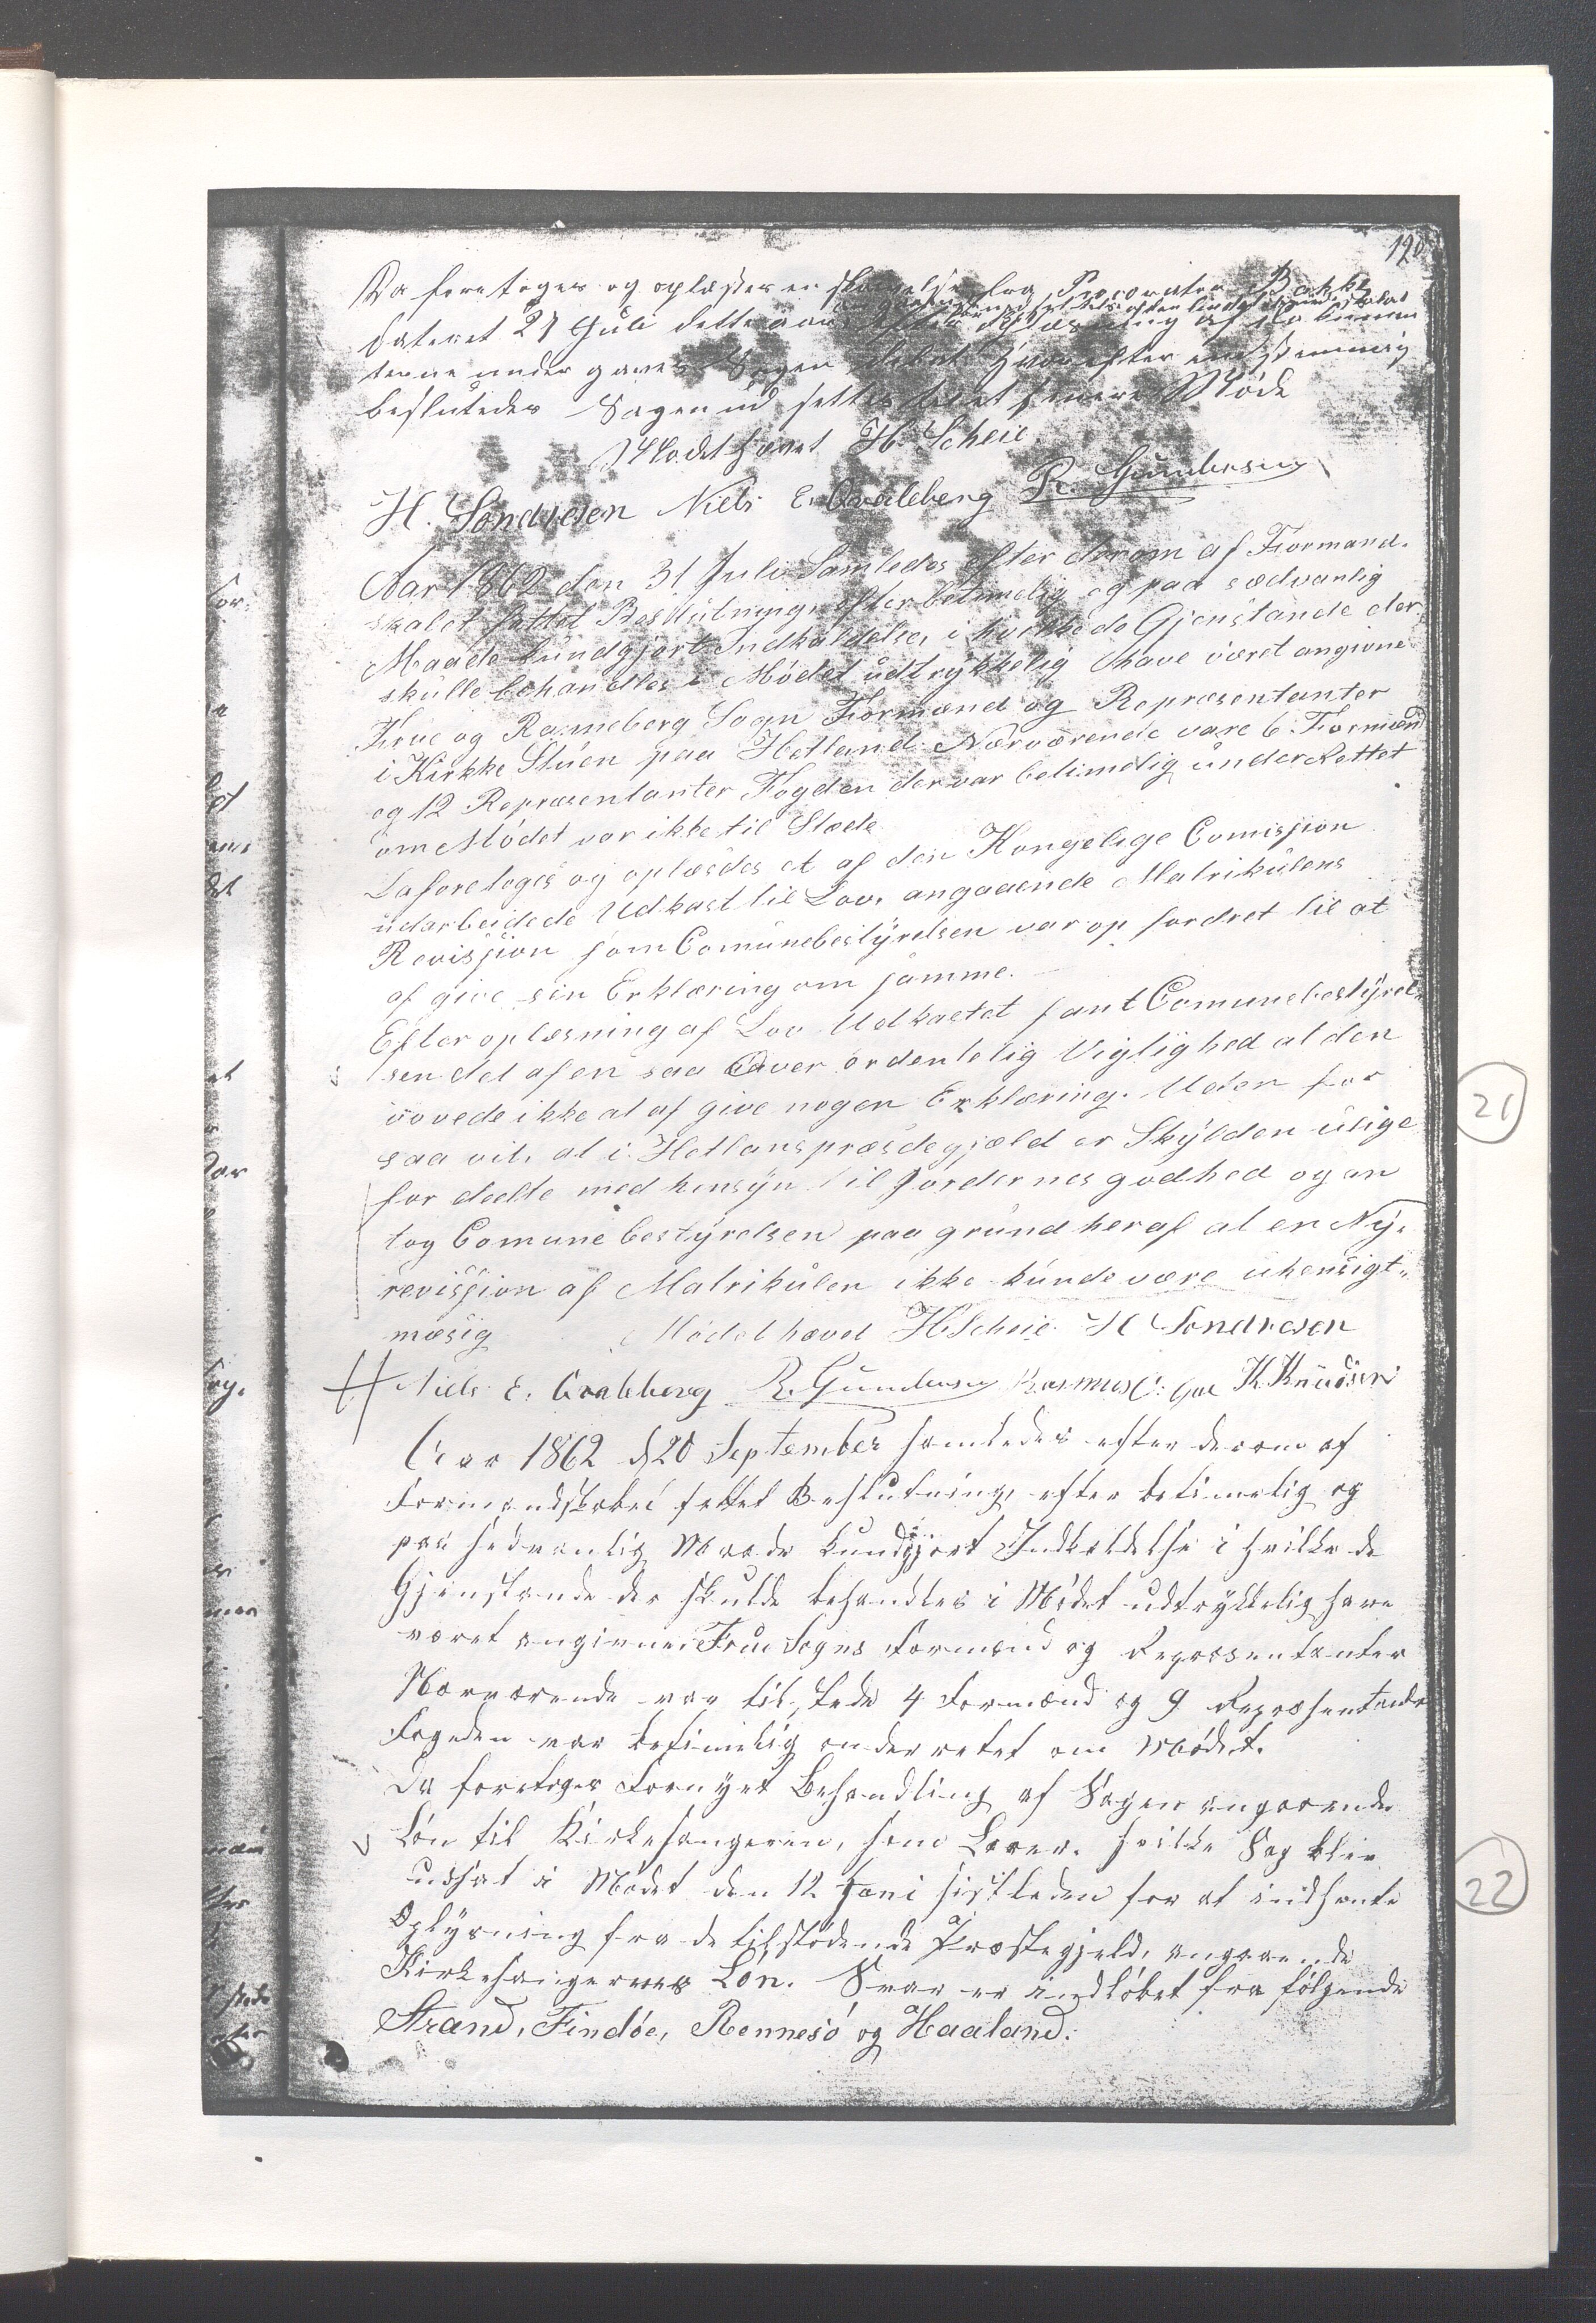 190
Da foretoges og oplæstes en skrivelse fra Procorator Bakke
dateret 27 Juli dette aar efter oplæsning af Dokumen
terne under gaves Sagen Debat hvorefter eenstemmig
beslutedes Sagen ud settes til et senere Møde
Mødet hævet H. Scheie
H. Sondresen Niels E. Qvaleberg R. Gundersen
Aar 1862 den 31 Juli Samledes efter derom af Formand-
skabet fattet Beslutning, efter betimelig og paa sædvanlig
Maade kundgjort Indkaldelse, i hvilke de Gjenstande der
skulle behandles i Mødet udtrykkelig have været angivne
Frue og Ranneberg Sogn Formænd og Repræsentanter
i Kirkke Stuen paa Hetland. Nærværende vare 6 Formænd
og 12 Repræsentanter Fogden der var betimelig underRettet
om Mødet var ikke til Stæde
Da foretoges og oplæsdes et af den Kongelige Comisjion
udarbeidede Udkast til Lov, angaaende Matrikulens
Revisjion som Comunebestyrelsen var op fordret til at
af give sin Erklæring om samme.
Efter oplæsning af Lov Udkastet fant Comunebestyrel-
sen det af en saa Over ordentelig Vigtighed at den
vovede ikke at af give nogen Erklæring. Uden for
saa vit, at i Hetlanspræsdegjæld er Skylden ulige
for deelte med hensyn til Jordernes godhed og an
tog Comune bestyrelsen paa grund heraf at en Ny-
revisjion af Matrikulen ikke kunde være uhensigt-
mæsig Mødet hævet H Scheie H Sondresen
Niels E. Qvaleberg R. Gundersen Rasmus K Knudsen
Aar 1862 d 20 September samledes efter derom af
Formandskabet fattet Beslutning, efter betimelig og
paa sedvanlig Maade kundgjort Indkaldelse i hvilke de
Gjenstande der skulde behandles i Mødet udtrykkelig have
været angivne Frue Sogns Formænd og Repræsentanter
Nærværende var tilstede 4 Formænd og 9 Repræsentanter
Fogeden var betimelig underretet om Mødet.
Da foretoges Fornyet Behandling af Sagen angaaende
Løn til Kirkesangeren, som Lærer. hvilke Sag blev
udsat i Mødet den 12 Juni sistleden for at indhente
Oplysning fra de tilstødende Præstegjeld, angaaende
Kirkesangernes Løn. Svar er indløbet fra følgende
Strand, Findøe, Rennesø og Haaland.
21
22